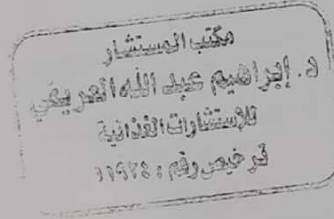 مكتب المستشار
د. إبراهيم عبد الله العريفي
للإستشارات الغذائية
ترخيص رقم : ١١٩٢٤